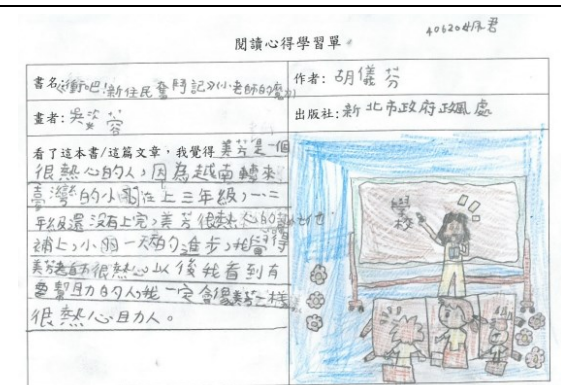 406204林君
閱讀心得學習單
書名:《衝吧!新住民奮鬥記》(小老師的魔力)
作者:胡儀芬
畫者:吳姿容
出版社:新北市政府政風處
看了這本書/這篇文章,我覺得美芳是一個
很熱心的人,因為越南轉來
臺灣的小羽在上三年級,一、二
年級還沒有上完,美芳很熱心的
補上,小羽一天天的進步,我覺得
美芳老師很熱心以後我看到有
要幫助的人,我一定會像美芳一樣
很熱心助人。
學校